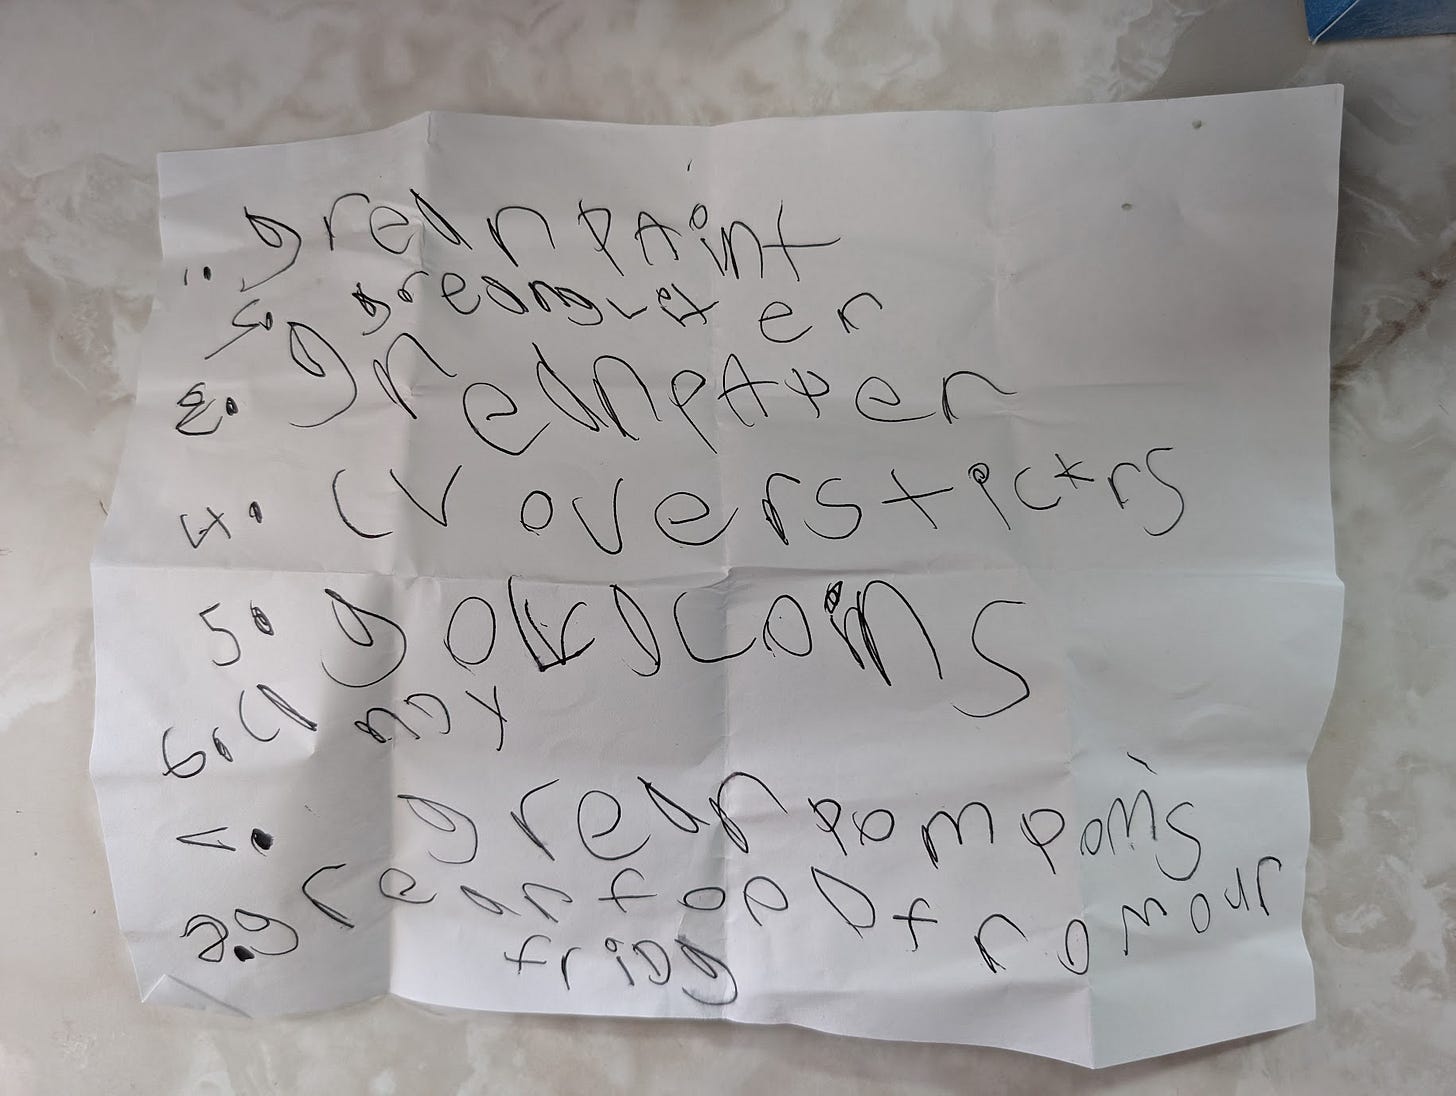 1. grean paint
2. greanglitter
3. grean paper
4. clover stickrs
5. gold coins
6. candy
7. grean pom poms
8. grean food from our
fridg